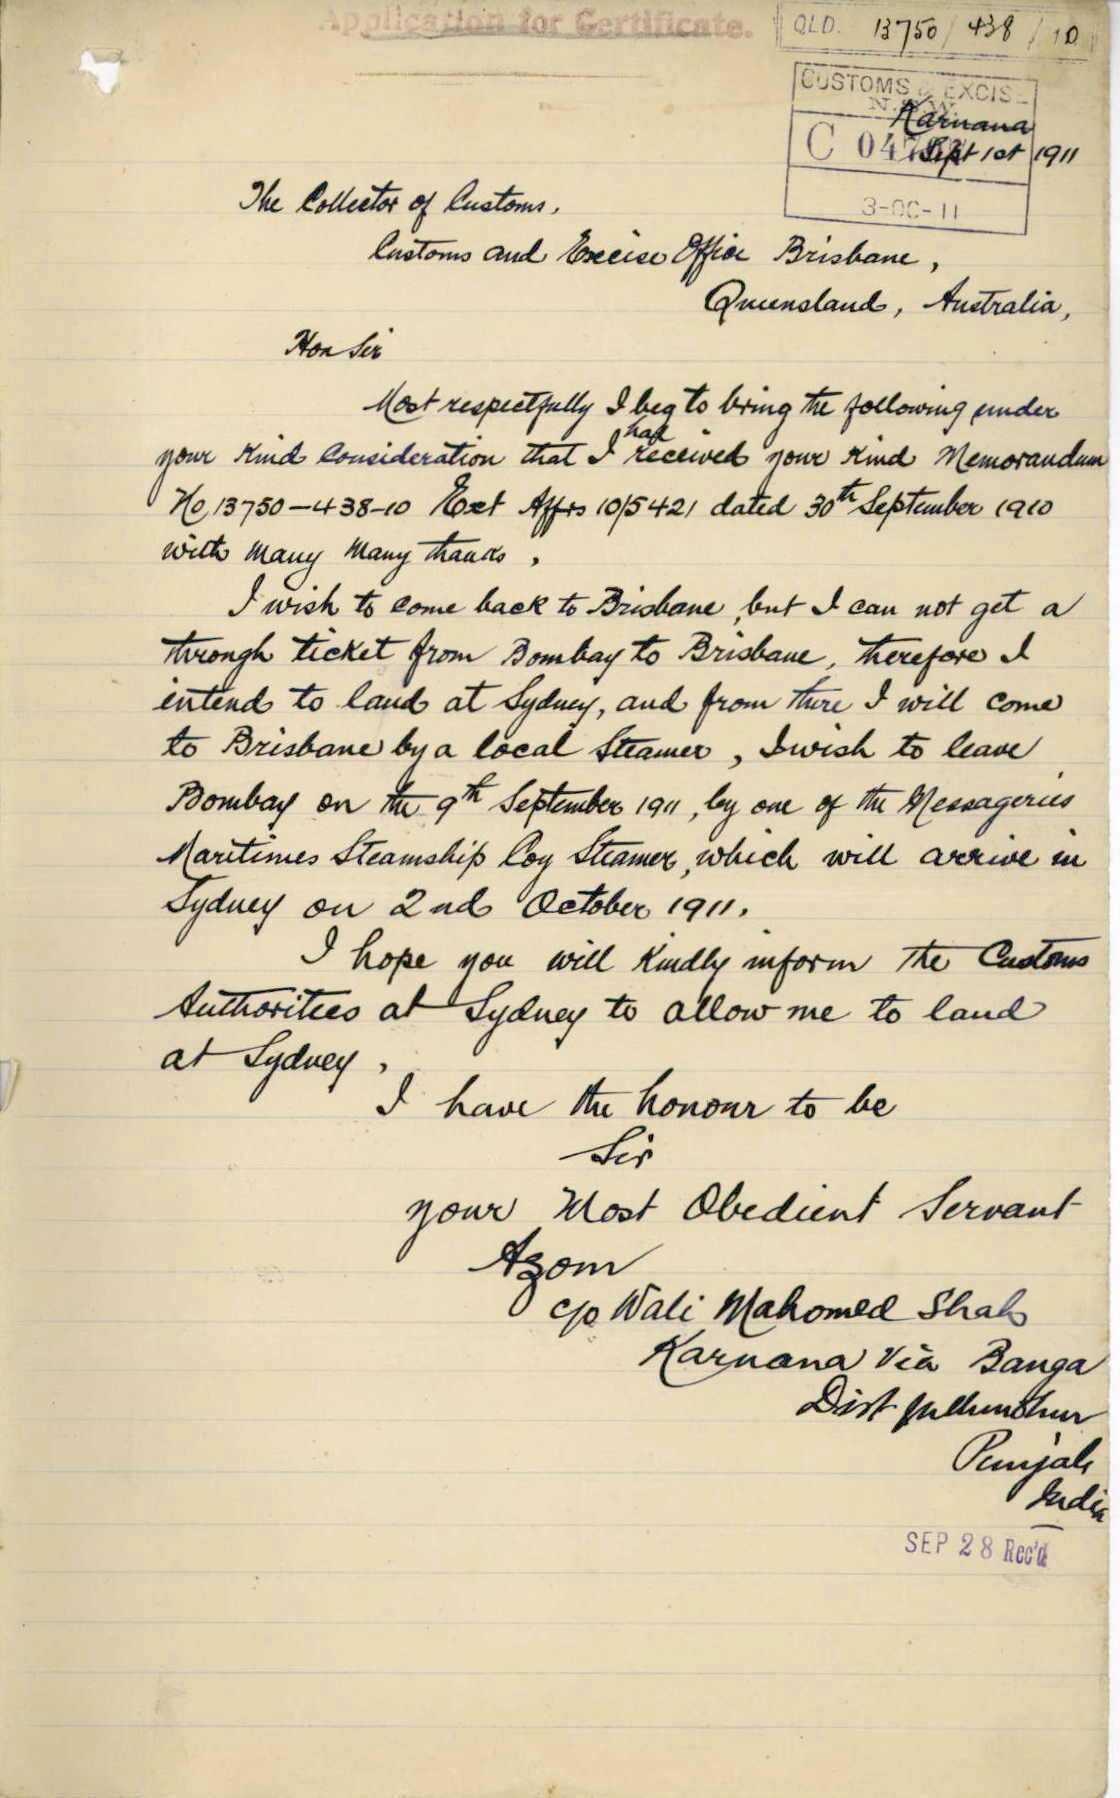 Application for Certificate.
QLD. 13750/438/10
CUSTOMS & EXCISE
N.S.W.
Karnana
C 047
Sept 1st 1911
3-OC-11
The Collector of Customs,
Customs and Excise Office Brisbane,
Queensland, Australia,
Hon Sir
Most respectfully I beg to bring the following under
had
your kind consideration that I received your kind Memorandum
No 13750-438-10 Ext Affrs 10/5421 dated 30th September 1910
with many many thanks,
I wish to come back to Brisbane, but I can not get a
through ticket from Bombay to Brisbane, therefore I
intend to land at Sydney, and from there I will come
to Brisbane by a local Steamer, I wish to leave
Bombay on the 9th September 1911, by one of the Messageries
Maritimes Steamship Coy Steamer, which will arrive in
Sydney on 2nd October 1911.
I hope you will kindly inform the Customs
Authorities at Sydney to allow me to land
at Sydney,
I have the honour to be
Sir
your Most Obedient Servant
Azom
c/o Wali Mahomed Shah
Karnana Via Banga
Dist Jullundhur
Punjab
India
SEP 28 Rec'd